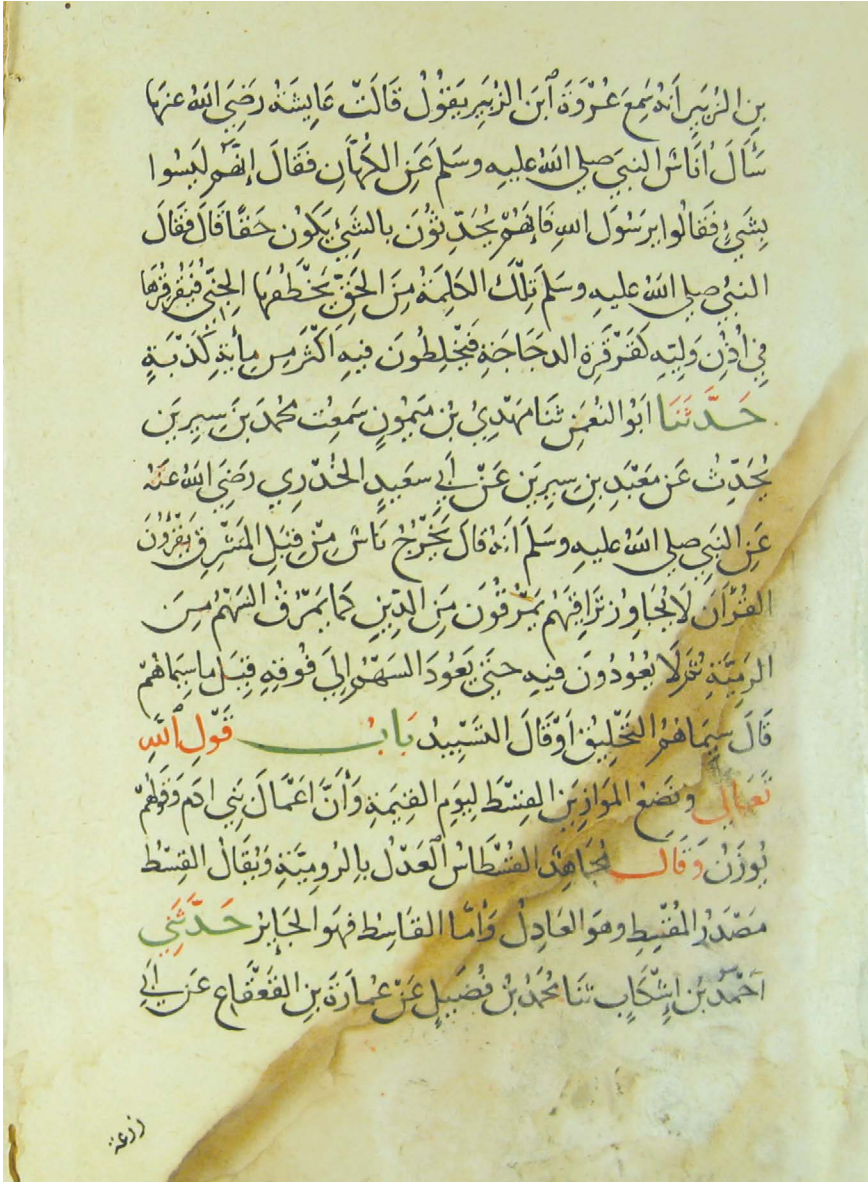 بنِ الزُبَيرِ أنه سَمِعَ عُرْوَةَ ٱبنَ الزُبَيرِ يَقوْلُ قَالَتْ عَايِشَةُ رضَيَ اللهُ عنهَا
سَأَلَ اُنَاسٌ النبيَ صلى اللهُ عليهِ وسَلمَ عَنِ الكُهَّانِ فَقَالَ إنَّهُم ليَسُوا
بِشَيءٍ فَقالُوا يرَسُولَ اللهِ فَإنهَمْ يُحَدّثوُنَ بالشَيْءِ يَكوُن حَقًا قَالَ فَقَالَ
النبيُ صلى اللهُ عليهِ وسَلمَ تِلْكَ الكَلِمَةُ مِنَ الحَقِّ يَخْطَفُهَا الجِنّيُ فَيُقَرْقِرُهَا
فيِ أذُنِ وَليّهِ كَقَرْقَرَةِ الدجَاجَةِ فَيَخْلِطوُنَ فيهِ اَكثَرَ مِن مِأيةِ كَذْبَةٍ
حَدَّثَنَا اَبوُ النعُمَٰنِ ثنَا مَهْدِيُ بْن مَيموُنٍ سَمعِت محُمدَ بنَ سِيرِينَ
يُحَدِّثُ عَن مَعْبَدِ بنِ سِيرِينَ عَنْ أبي سعَيدٍ الخُدْرِي رضَيَ اللهُ عنَهُ
عَنِ النبَيِ صلى اللهُ عليهِ وسَلمَ اَنهُ قالَ يَخْرُجُ نَاسٌ مِنْ قِبَلِ المَشْرِقِ يَقْرَؤُنَ
القُرْآنَ لَا يُجَاوِزُ تَرَاقِيَهُم يَمْرُقُونَ مِنَ الدّيِنِ كَمَا يَمْرُقُ السَهْمُ مِنَ
الرَمِيَّةِ ثمُ لَا يعُوُدُونَ فيهِ حَتىَّ يَعوُدَ السَهْمُ إلىَ فُوقهِ قِيَلَ ما سِيمَاهُمْ
قَالَ سيِمَاهُمُ التَحْلِيقُ أوْ قَالَ التَسْبِيدُ بَابُ قَوْلِ ٱللهِ
تَعَالىِ ونَضَعُ المَوَازِينَ القِسْطَ ليِوَمِ القِيَمَةِ وَأنَّ اَعْمَالَ بَنيِ ادَم وَقَولهُمْ
يُوزَنُ وَقَالَ مُجَاهِدٌ القُسْطَاسُ العَدْلُ بالرُومِيّةِ وَيُقَالُ القِسْطُ
مَصْدَرُ المُقْسِطِ وهوَ العَادِلُ وَأمّا القَاسِط فهَوَ الجَايرُ حَدَّثَنِي
اَحْمَدُ بنُ اِشْكَابٍ ثنَا محَمدُ بْنُ فُضَيلٍ عَنْ عمُارَةَ بنِ القَعْقَاعِ عَن أبي
زرعة